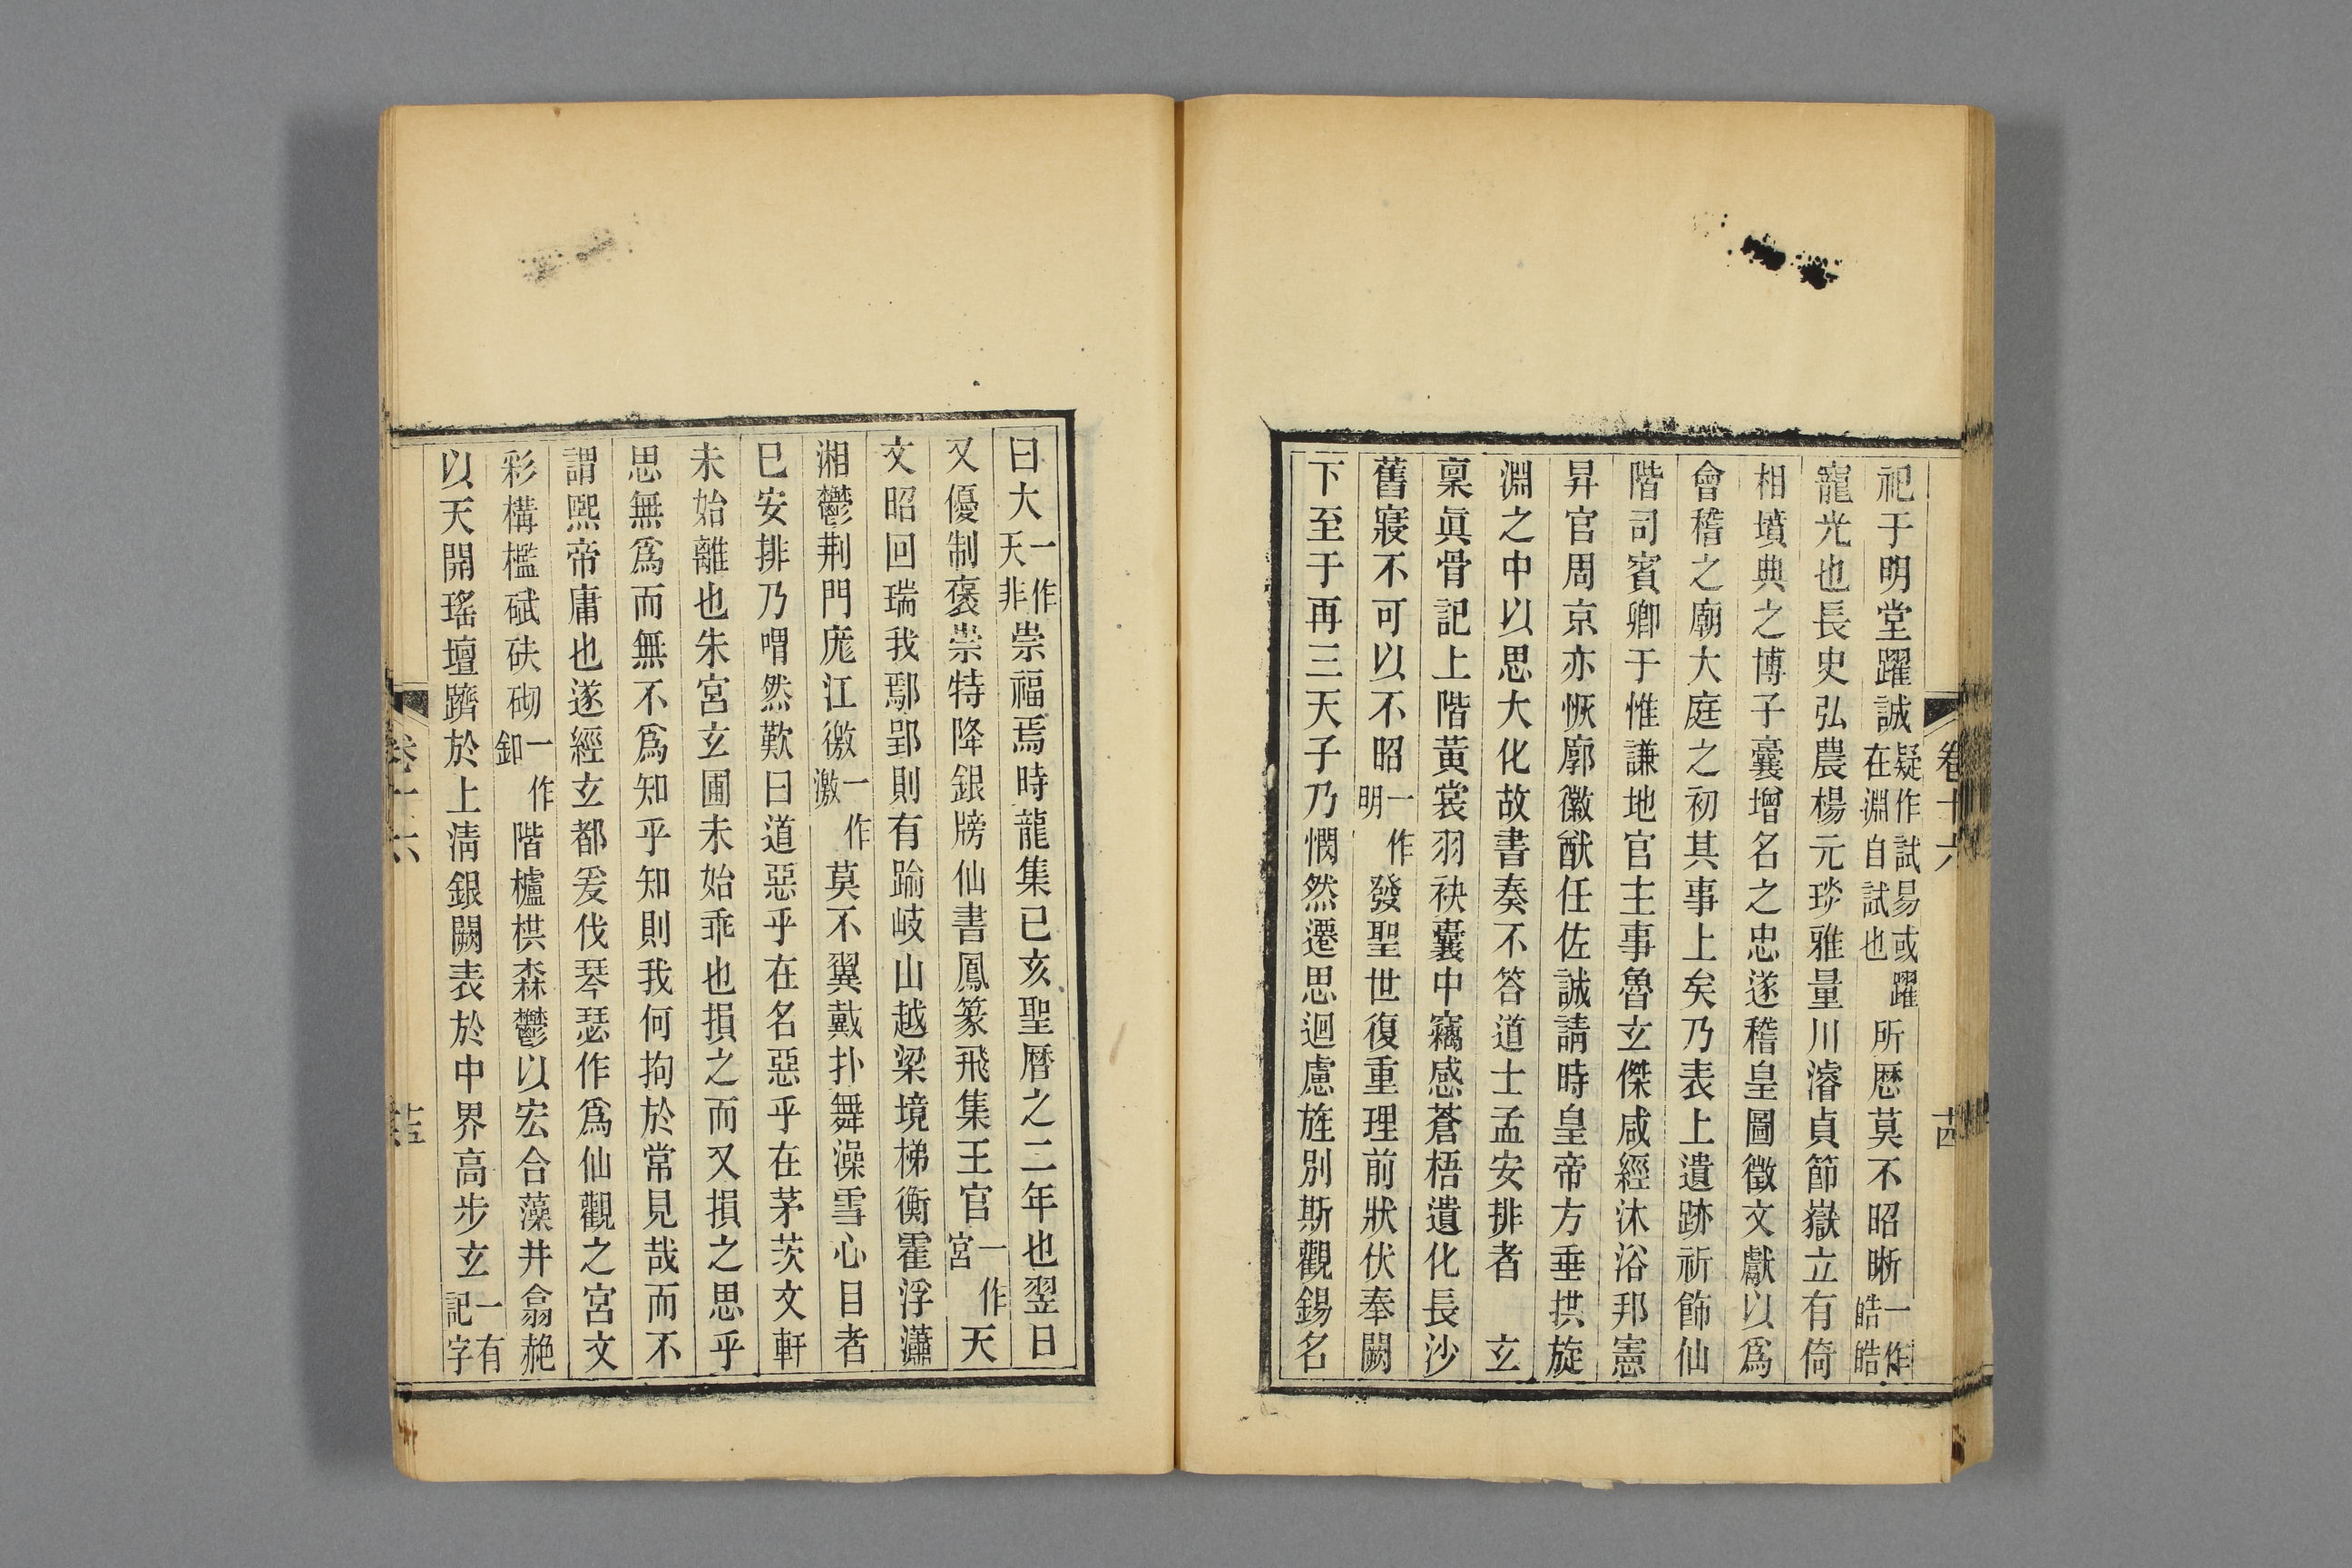 卷十六
十四
祀于明堂躍誠疑作試易或躍在淵自試也所歷莫不昭晰一作皓皓
寵光也長史弘農楊元琰雅量川濬貞節嶽立有倚
相墳典之博子囊增名之忠遂稽皇圖徵文獻以爲
會稽之廟大庭之初其事上矣乃表上遺跡祈飾仙
階司賓卿于惟謙地官主事魯玄傑咸經沐浴邦憲
昇官周京亦恢廓徽猷任佐誠請時皇帝方垂拱旋
淵之中以思大化故書奏不答道士孟安排者玄
稟眞骨記上階黃裳羽袂囊中竊感蒼梧遺化長沙
舊寢不可以不昭一作明發聖世復重理前狀伏奉闕
下至于再三天子乃憫然遷思迴慮旌別斯觀錫名
曰大一作天非崇福焉時龍集已亥聖曆之二年也翌日
又優制褒崇特降銀牓仙書鳳篆飛集王官一作宮天
文昭回瑞我鄢郢則有踰岐山越梁境梯衡霍浮瀟
湘鬱荆門庬江徼一作激莫不翼戴抃舞澡雪心目者
巳安排乃喟然歎曰道惡乎在名惡乎在茅茨文軒
未始離也朱宮玄圃未始乖也損之而又損之思乎
思無爲而無不爲知乎知則我何拘於常見哉而不
謂熙帝庸也遂經玄都爰伐琴瑟作爲仙觀之宮文
彩構檻碔砆砌一作釦階櫨栱森鬱以宏合藻井翕赩
以天開瑤壇躋於上淸銀闕表於中界高步玄一有記字
卷十六
十五